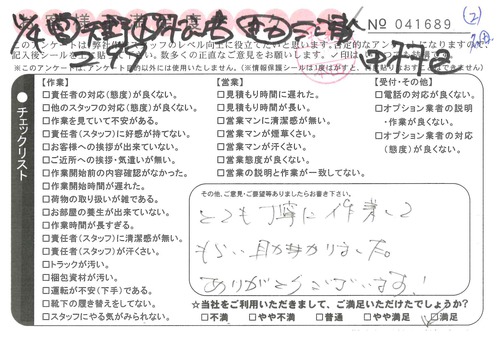 No 041689
このアンケートは弊社
のレベル向上に役立てたいと思います。否定的なアンケートになりますので、
記入後シール
数多くの正直なご意見をお願いします。✓印は
※このアンケートは、アンケート目的以外には使用いたしません。(※情報保護シールは1度はがすと、
チェックリスト
【作業】
□責任者の対応(態度)が良くない。
□他のスタッフの対応(態度)が良くない。
□作業を見ていて不安がある。
□責任者(スタッフ)に好感が持てない。
□お客様への挨拶が出来ていない。
□ご近所への挨拶・気遣いが無い。
□作業開始前の内容確認がなかった。
□作業開始時間が遅れた。
□荷物の取り扱いが雑である。
□お部屋の養生が出来ていない。
□作業時間が長すぎる。
□責任者(スタッフ)に清潔感が無い。
□責任者(スタッフ)が汗くさい。
□トラックが汚い。
□梱包資材が汚い。
□運転が不安(下手)である。
□靴下の履き替えをしてない。
□スタッフにやる気がみられない。
【営業】
□見積もり時間に遅れた。
□見積もり時間が長い。
□営業マンに清潔感が無い。
□営業マンが煙草くさい。
□営業マンが汗くさい。
□営業態度が良くない。
□営業の説明と作業が一致してない。
【受付・その他】
□電話の対応が良くない。
□オプション業者の説明
・作業が良くない。
□オプション業者の対応
(態度)が良くない。
その他、ご意見・ご要望等ありましたらお書き下さい。
とても丁寧に作業して
もらい助かりました。
ありがとうございます!
☆当社をご利用いただきまして、ご満足いただけたでしょうか?
□不満 □やや不満 □普通 □やや満足 □満足